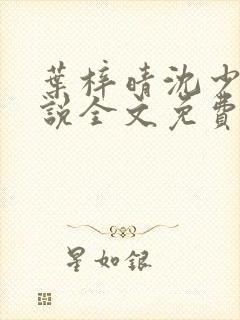 葉梓晴沈少
說全文免費
星如銀